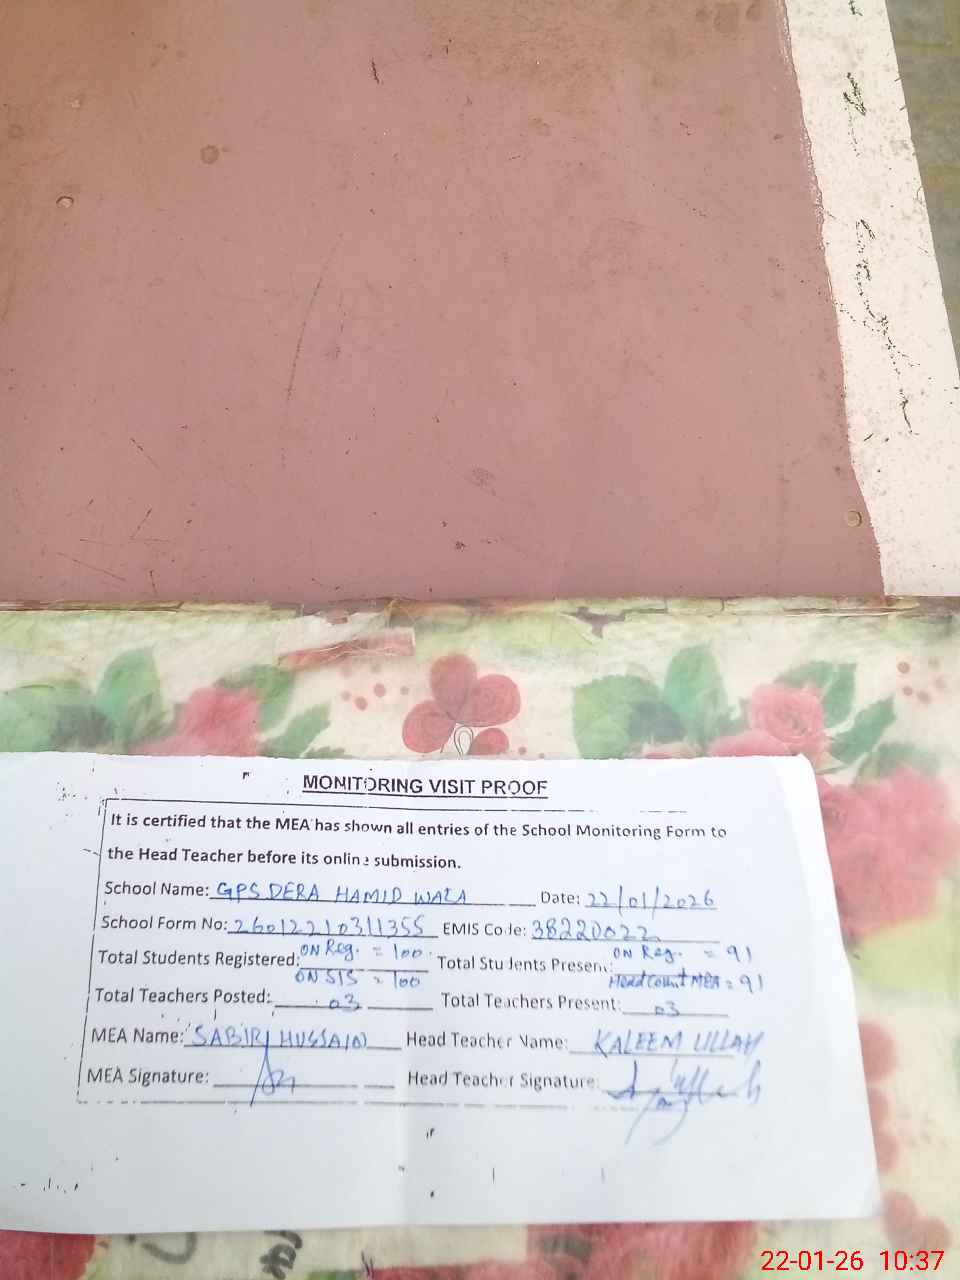 MONITORING VISIT PROOF
It is certified that the MEA has shown all entries of the School Monitoring Form to
the Head Teacher before its online submission.
School Name: GPS DERA HAMID WALA Date: 22/01/2026
School Form No: 26012210311355 EMIS Code: 38220022
Total Students Registered: ON Reg. = 100 ON SIS = 100 Total Students Present: ON Reg. = 91 Head Count MEA = 91
Total Teachers Posted: 03 Total Teachers Present: 03
MEA Name: SABIR HUSSAIN Head Teacher Name: KALEEM ULLAH
MEA Signature: Head Teacher Signature:
22-01-26 10:37